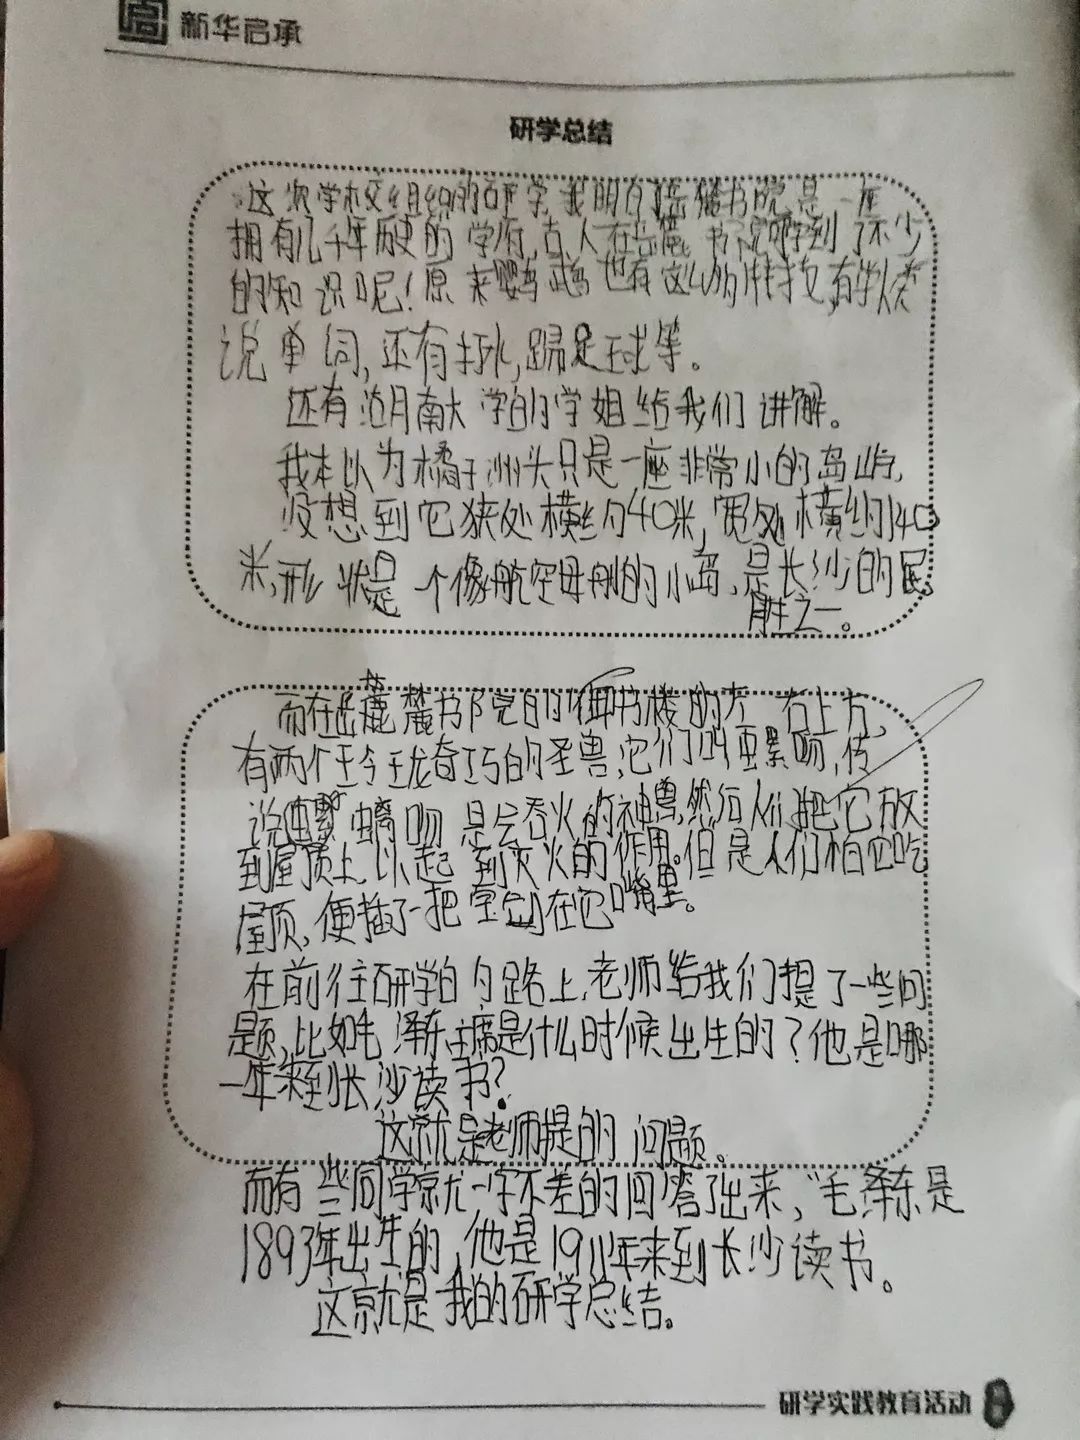 新华启承
研学总结
这次学校组织的研学,我明白了岳麓书院是一座
拥有几千年历史的学府,古人在岳麓书院学到了不少
的知识呢!原来鹦鹉也有这么多特技,有
说单词,还有 踢足球等。
还有湖南大学的学姐给我们讲解。
我本以为橘子洲头只是一座非常小的岛屿,
没想到它狭处横约40米,宽处横约140
米,形状是一个像航空母舰的小岛,是长沙的
胜之一。
而在岳麓书院的御书楼的左右上方,
有两个玲珑奇巧的圣兽,它们叫 吻,传
说螭吻是会吞火的神兽,然后人们把它放
到屋顶上,以起到灭火的作用。但是人们怕它吃
屋顶,便插了一把宝剑在它嘴里。
在前往研学的路上,老师给我们提了一些问
题,比如毛泽东主席是什么时候出生的?他是哪
一年来到长沙读书?
这就是老师提的问题。
而有些同学就一字不差的回答了出来,“毛泽东是
1893年出生的,他是1911年来到长沙读书。
这就是我的研学总结。
研学实践教育活动